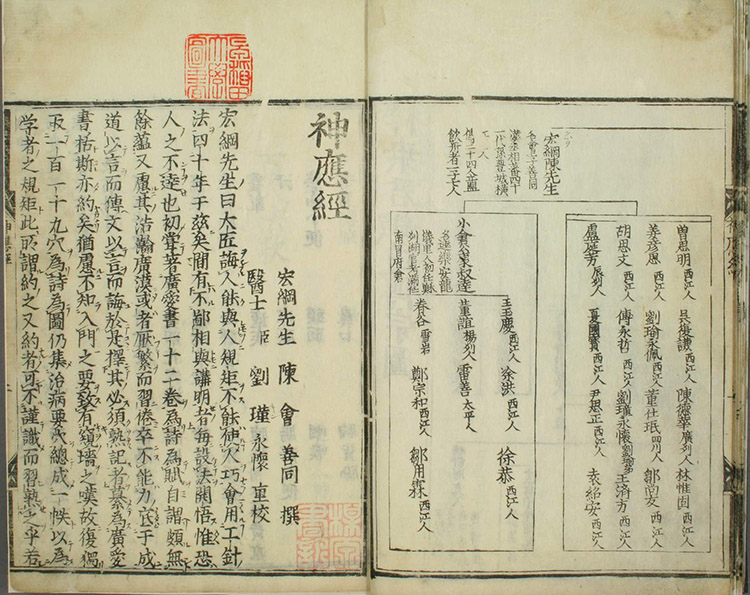 宏綱陳先生
曾思明 西江人 吳復謙 西江人 陳德華 廣列人 林惟固 西江人
姜彥思 西江人 劉瑜永佩 西江人 董仕珉 四川人 鄒尚友 西江人
胡思文 西江人 傅永哲 西江人 劉瑾永懷 王濟方 西江人
盧廷芳 辰列人 夏國賓 西江人 尹思正 西江人 袁紹安 西江人
王玉慶 西江人 余洪 西江人 徐恭 西江人
董誼 楊列人 雷善 太平人
春谷 雷岩 鄭宗和 西江人 鄒用霖 西江人
神應經
宏綱先生 陳 會 善同 撰
醫士 劉 瑾 永懷 重校
宏綱先生曰大匠誨人能與人規矩不能使人巧會用工針
法四十年于玆矣間有不鄙相與講明者每設法開悟惟恐
人之不逵也初甞著廣愛書一十二卷為詩為賦自謂頗無
餘蘊又慮其浩瀚廣漠或者厭繁而習倦卒不能力底于成
道以言而傳文以言而誨於是擇其必須熟記者纂為廣愛
書括斯亦約矣猶慮不知入門之要致有窺墻之嘆故復獨
取一百一十九穴為詩為圖仍集治病要穴總成一帙以為
学者之規矩此所謂約之又約者可不謹識而習熟之乎若
神應經